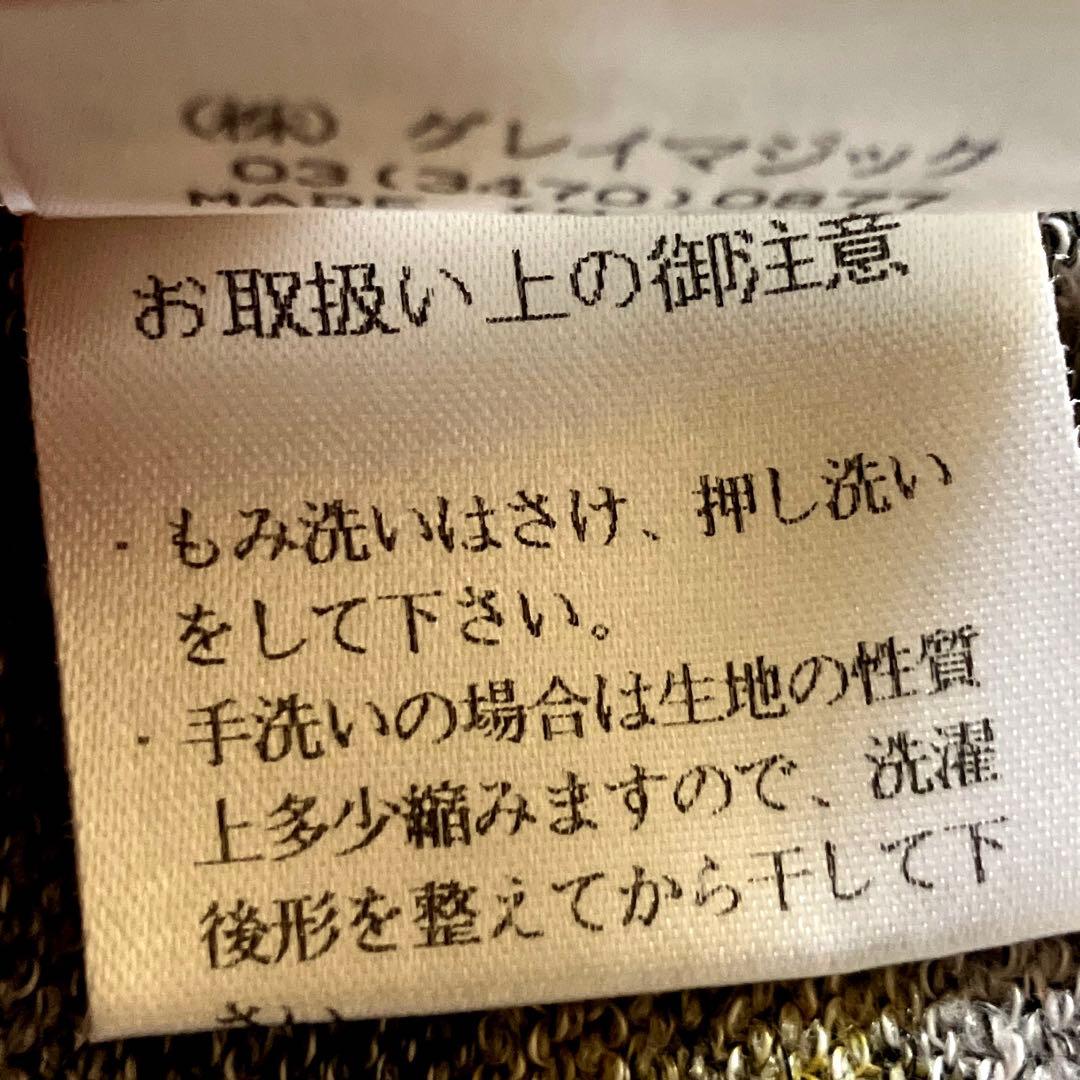 (株) グレイマジック
03(3470)0877
MADE
お取扱い上の御注意
・もみ洗いはさけ、押し洗い
をして下さい。
・手洗いの場合は生地の性質
上多少縮みますので、洗濯
後形を整えてから干して下
さい